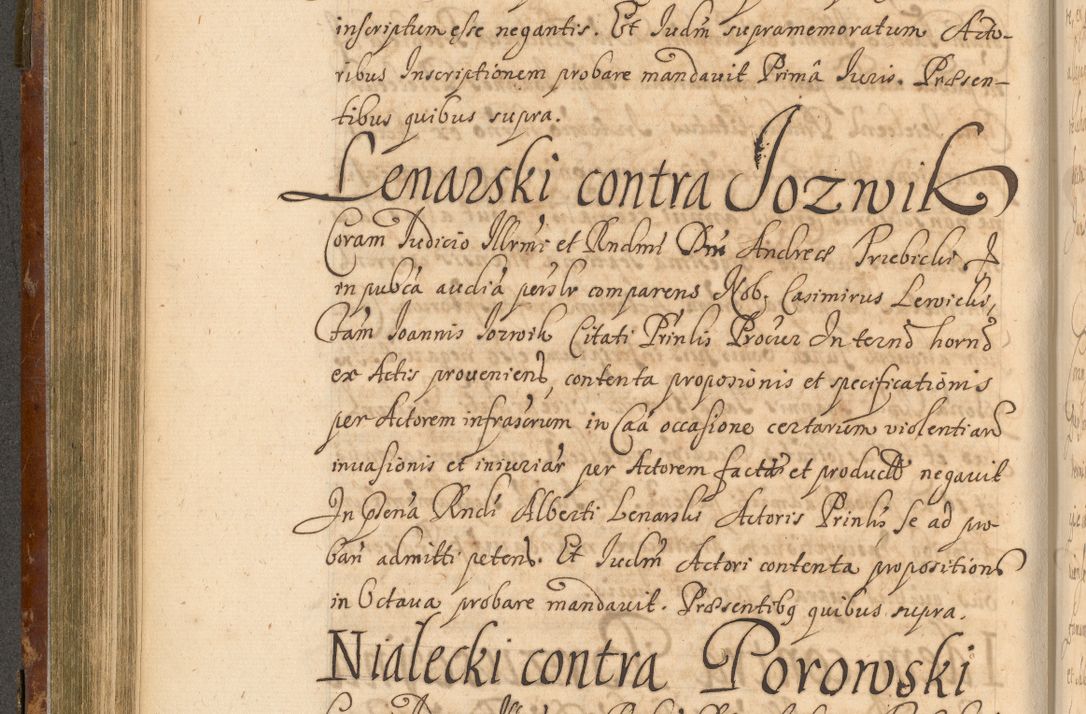 inscriptum esse negantis. Et Iudm̃ supramemoratum Acto-
ribus Inscriptionem probare mandauit Primâ Iuris. Præsen-
tibus quibus supra.
Lenarski contra Jozwik
Coram Iudicio Illrmi et Rndmi Dni Andreæ Przebicki
in pubca audia persلr comparens Nob. Casimirus Lewicki,
Tam Ioannis Iozwik Citati Prinlis Procur In termo horno
ex Actis proueniens contenta proposionis et specificationis
per Actorem infrascrum in Caa occasione certarum violentiaru
inuasionis et iniuriar per Actorem factæ et productæ negauit
In psena Rndi Alberti Lenarski Actoris Prinlis se ad pro
ban admitti petens. Et Iudm Actori contenta propositionis
in Octaua probare mandauit. Præsentibq quibus supra.
Nialecki contra Porowski